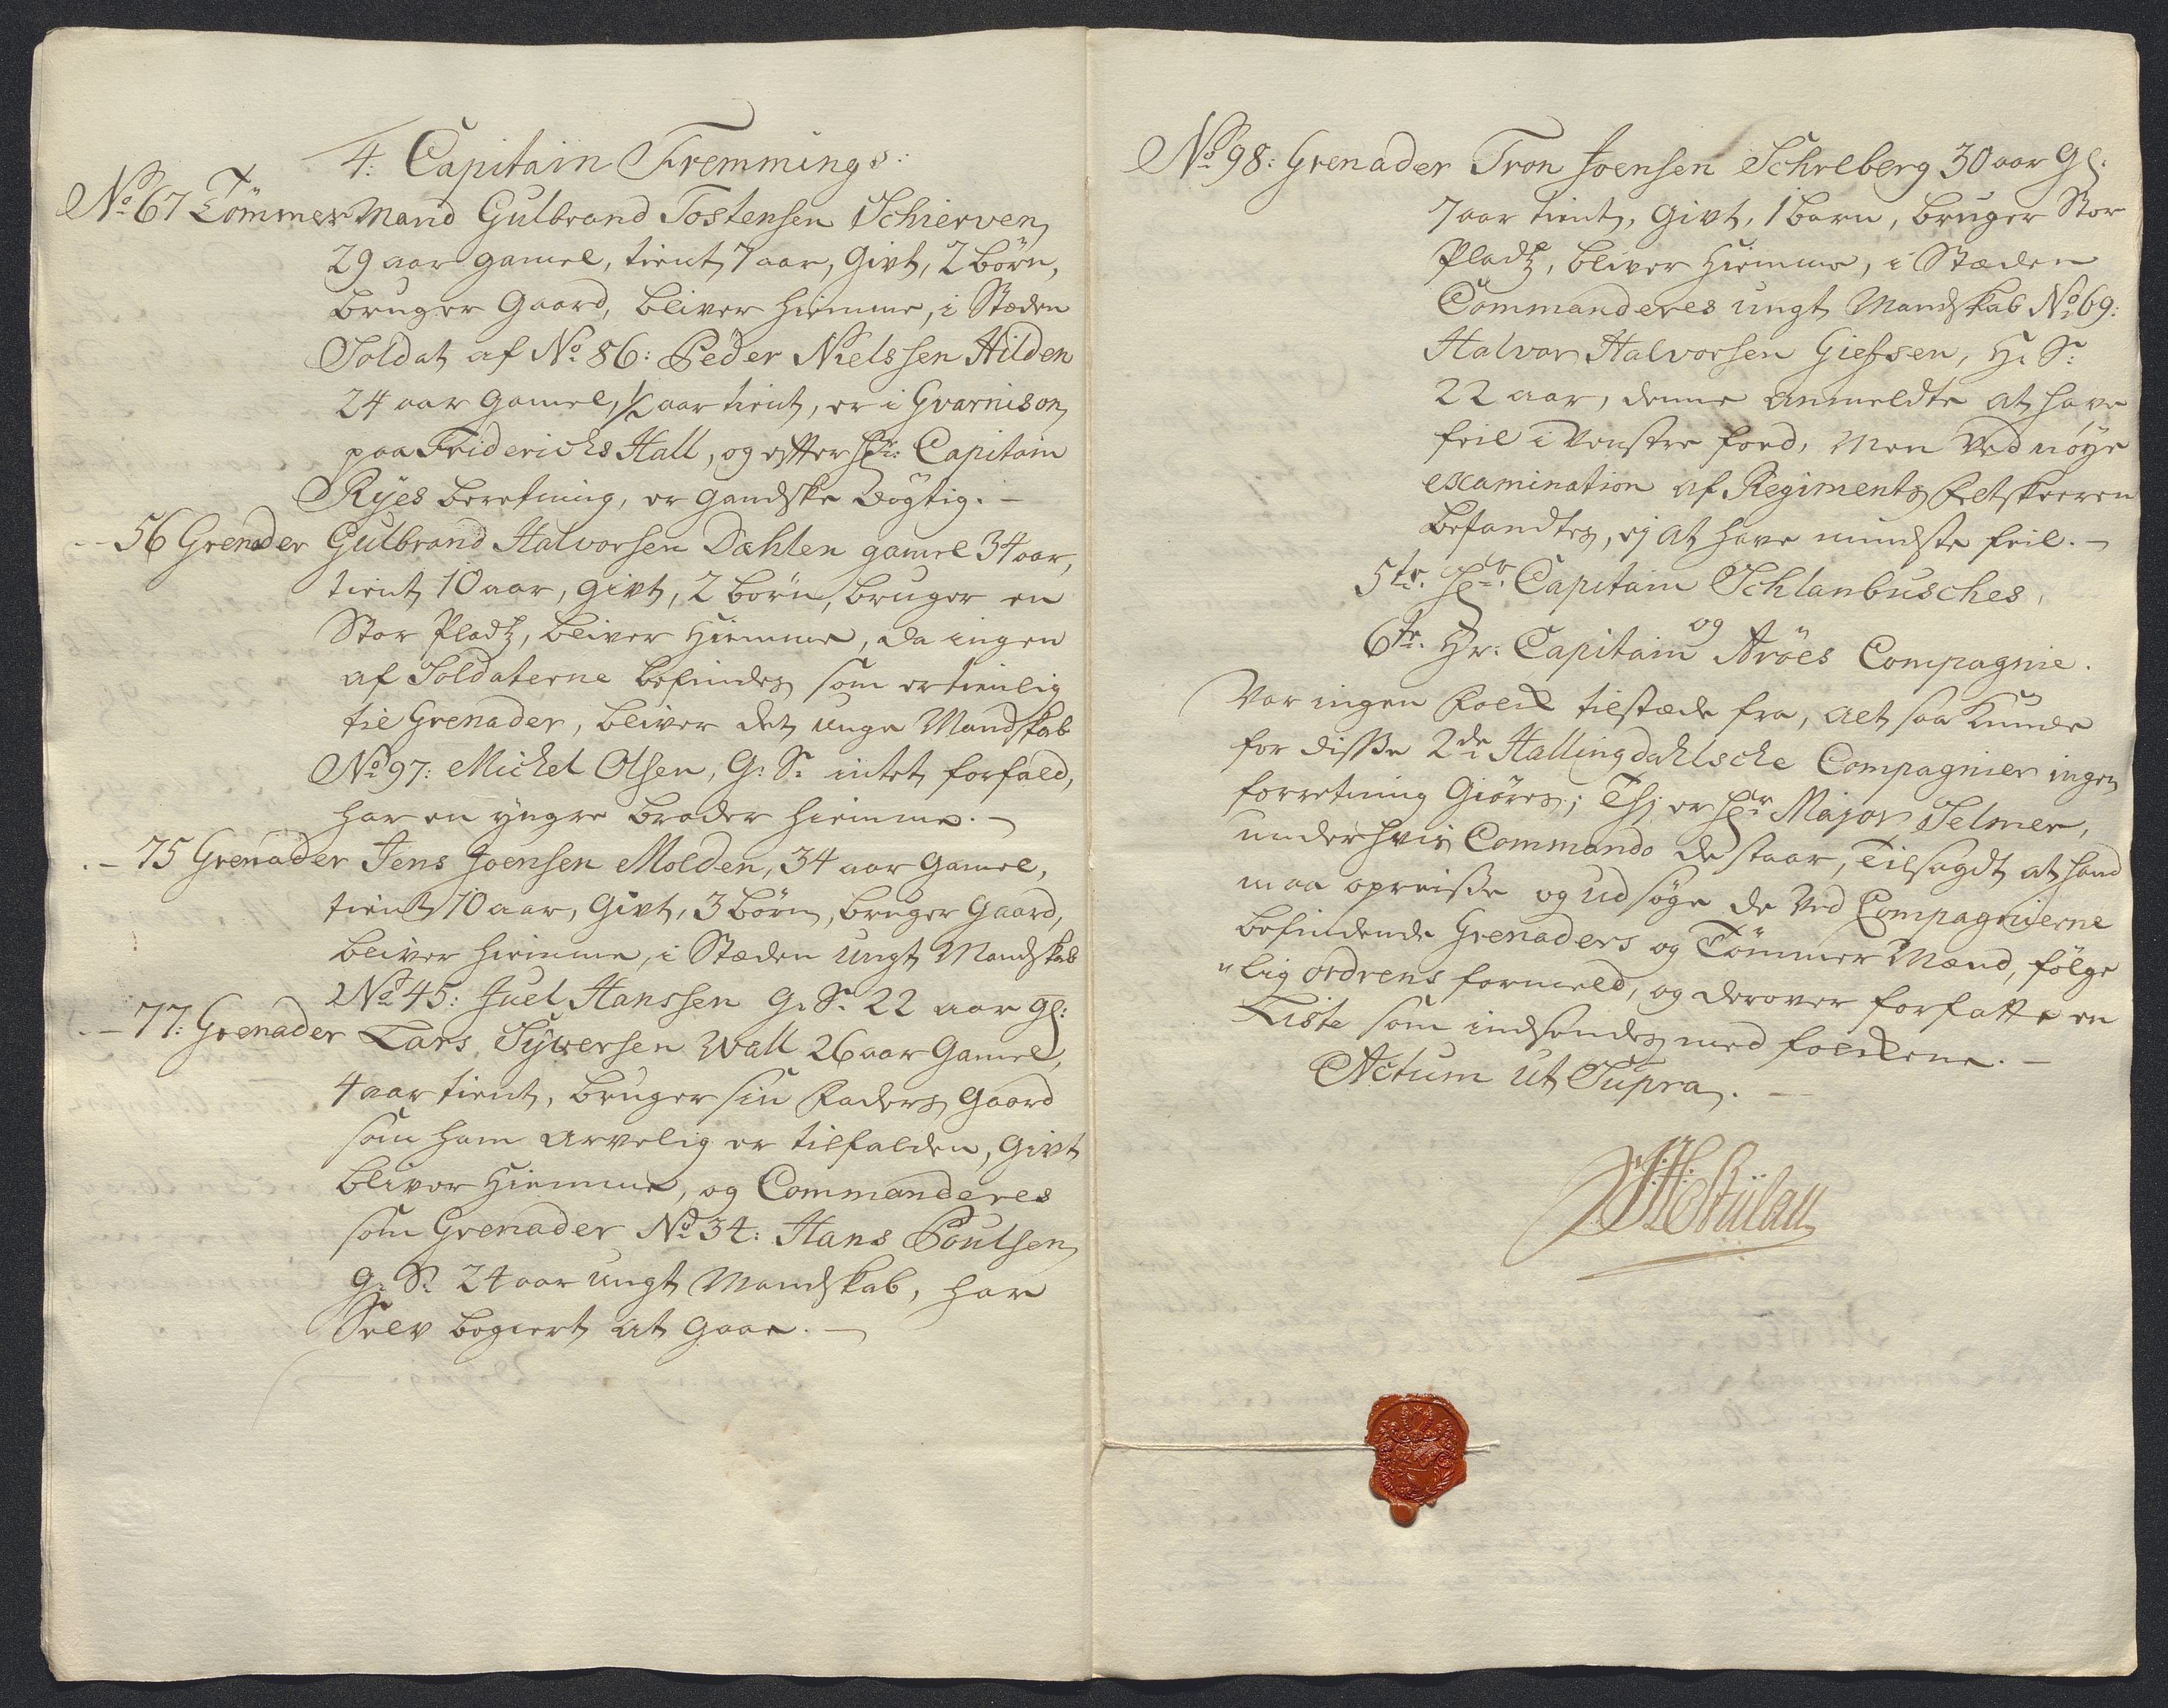 4: Capitain Fremmings:
No 67 Tömmer Mand Gulbrand Tostensen Schierven
29 aar gamel, tient 7 aar, Givt, 2 börn,
bruger Gaard, bliver hiemme, i Stæden
Soldat af No 86: Peder Nielssen Hilden
24 aar gamel, ½ aar tient, er i Gvarnison
paa Friderichs Hall, og efter Hr: Capitain
Ryes beretning, er gandske dögtig. -
-- 56 Grenader Gulbrand Halvorsen Dæhlen gamel 34 aar,
tient 10 aar, givt, 2 börn, bruger en
Stor Pladtz, bliver hiemme, da ingen
af Soldaterne befindes som er tienlig
til Grenader, bliver det unge Mandskab
No 97: Michel Olsen, G: S: intet forfald,
har en yngre broder hiemme. -
. - 75 Grenader Jens Joensen Molden, 34 aar gamel,
tient 10 aar, Givt, 3 börn, bruger Gaard,
bliver hiemme, i Stæden ungt Mandskab
No 45: Juel Hanssen G: S: 22 aar gl:
. - 77: Grenader Lars Syversen Wall 26 aar Gamel,
4 aar tient, bruger sin Faders Gaard
som ham arvelig er tilfalden, Givt
bliver hiemme, og Commanderes
som Grenader No 34: Hans Poulsen
G: S: 24 aar ungt Mandskab, har
Selv begiert at gaae. -
No 98: Grenader Tron Joensen Schreberg 30 aar Gl:
7 aar tient, Givt, 1 barn, bruger Stor
Pladtz, bliver hiemme, i Stæden
Commanderes ungt Mandskab No 69:
Halvor Halvorsen Giefsen, H: S:
22 aar, denne anmeldte at have
feil i Venstre foed, Men Ved nöye
examination af Regiments Feltskeeren
befandtes, ej at have mindste feil. -
5te. Hr. Capitain Schlanbusches,
og
6te. Hr: Capitain Aröes Compagnie.
Var ingen Folck tilstæde fra, alt saa kunde
for disse 2de Hallingdahlsche Compagnier ingen
forretning Giöres; Thi er Hr Major Selmer,
under hvis Commando de staar, Tilsagdt at hand
maa opreise og udsöge de Ved Compagnierne
befindende Grenaders og Tömmer Mænd, fölge
"lig ordrens formeld, og derover forfatte en
Liste som indsendes med folckene. -
Actum ut Supra. -